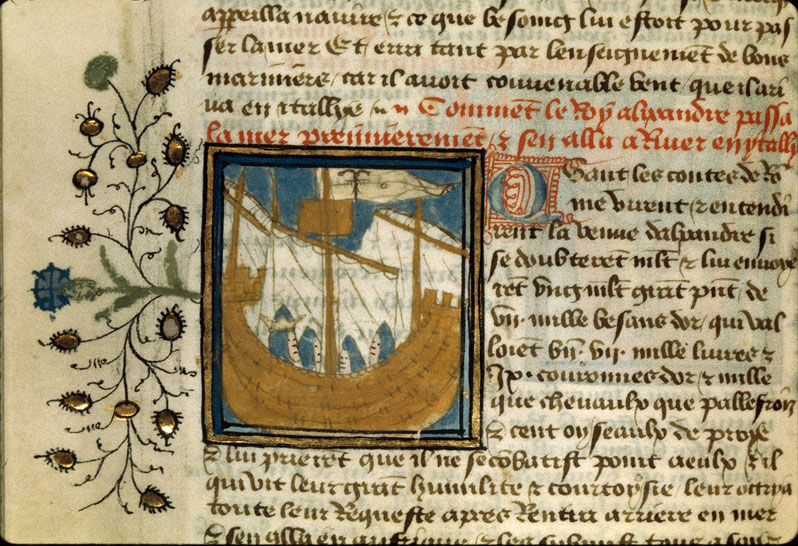 appeilla nauire ⁊ ce que besoing lui estoit pour pas
ser la mer Et erra tant par lenseignement de bons
maronniers, car il auoit couuenable vent, que il ari
ua en itallye Comment le Roy alixandre passa
la mer premierement, ⁊ sen alla ariuer en ytally
Quant les contes de Ro
me virent ⁊ entendi
rent la venue dalixandre si
se doubterent mlt ⁊ lui enuoye
rent vng mlt grant pnt, de
vii. mille besans dor, qui val
loient vii. mille liures ⁊
ix. couronnes dor, ⁊ mille
que cheuaulx que pallefroiz
⁊ cent oyseaulx de proye
⁊ lui prierent que il ne se combatist point a eulx ⁊ il
qui vit leur grant humilite ⁊ courtoysie, leur ottrya
toute leur Requeste apres Rentra arriere en mer
⁊ sen alla en auffrique ⁊ les